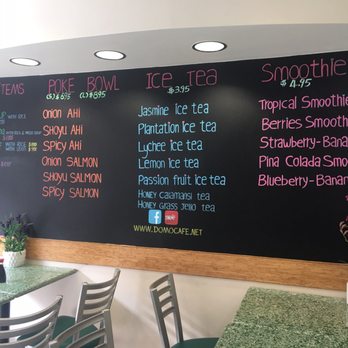 TEMS
WITH RICE
POKE BOWL
(S) $6.95 (L) $8.95
ONION AHI
SHOYU AHI
SPICY AHI
ONION SALMON
SHOYU SALMON
SPICY SALMON
ICE TEA
$3.95
Jasmine ice tea
Plantation ice tea
Lychee ice tea
Lemon ice tea
Passion fruit ice tea
HONEY CALAMANSI TEA
HONEY GRASS JELLO TEA
f
WWW.DONOCAFE.NET
Smoothie
$4.95
Tropical Smoothie
Berries Smoothi
Strawberry-Bana
Pina Colada Smo
Blueberry-Banan